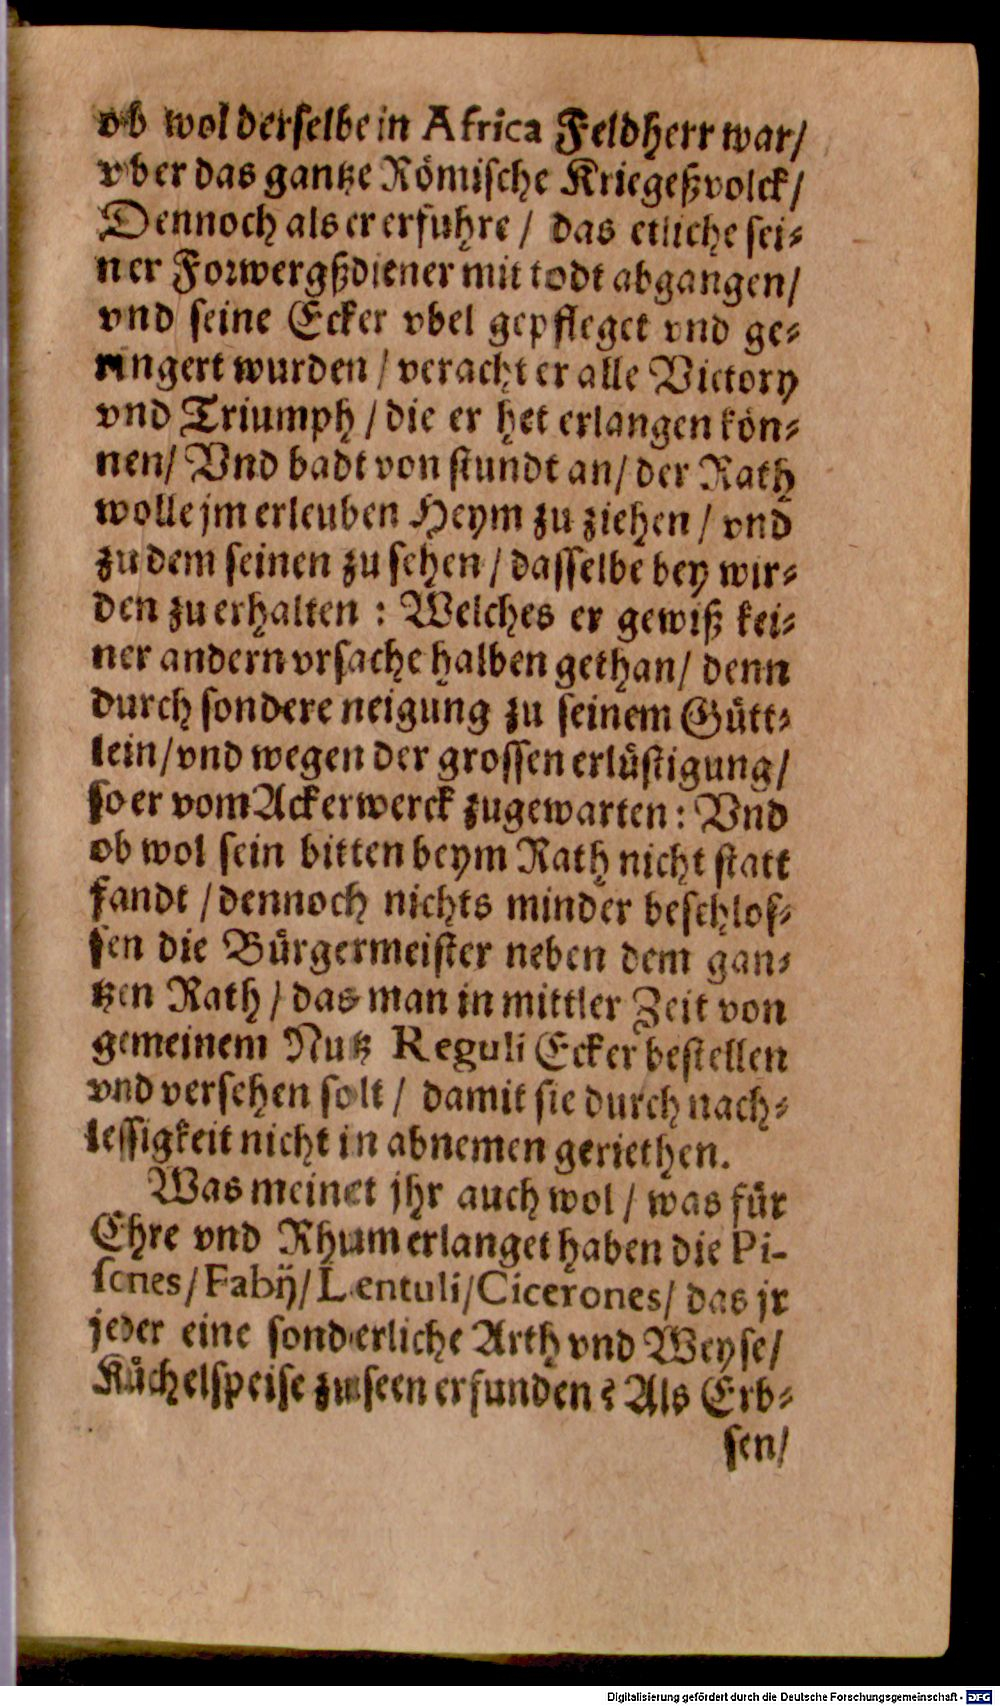 ob wol derselbe in Africa Feldherr war/
vber das gantze Römische Kriegeßvolck/
Dennoch als er erfuhre / das etliche sei-
ner Forwergßdiener mit todt abgangen/
vnd seine Ecker vbel gepfleget vnd ge-
ringert wurden / veracht er alle Victory
vnd Triumph / die er het erlangen kön-
nen/ Vnd badt von stundt an/ der Rath
wolle jm erleuben Heym zu ziehen / vnd
zu dem seinen zu sehen / dasselbe bey wir-
den zu erhalten : Welches er gewiß kei-
ner andern vrsache halben gethan/ denn
durch sondere neigung zu seinem Gütt-
lein/ vnd wegen der grossen erlüstigung/
so er vom Ackerwerck zugewarten : Vnd
ob wol sein bitten beym Rath nicht statt
fandt / dennoch nichts minder beschlos-
sen die Bürgermeister neben dem gan-
tzen Rath / das man in mittler Zeit von
gemeinem Nutz Reguli Ecker bestellen
vnd versehen solt / damit sie durch nach-
lessigkeit nicht in abnemen geriethen.
Was meinet jhr auch wol / was für
Ehre vnd Rhum erlanget haben die Pi-
sones/ Fabij/ Lentuli/ Cicerones/ das jr
jeder eine sonderliche Arth vnd Weyse/
Küchelspeise zu seen erfunden? Als Erb-
sen/
Digitalisierung gefördert durch die Deutsche Forschungsgemeinschaft - DFG